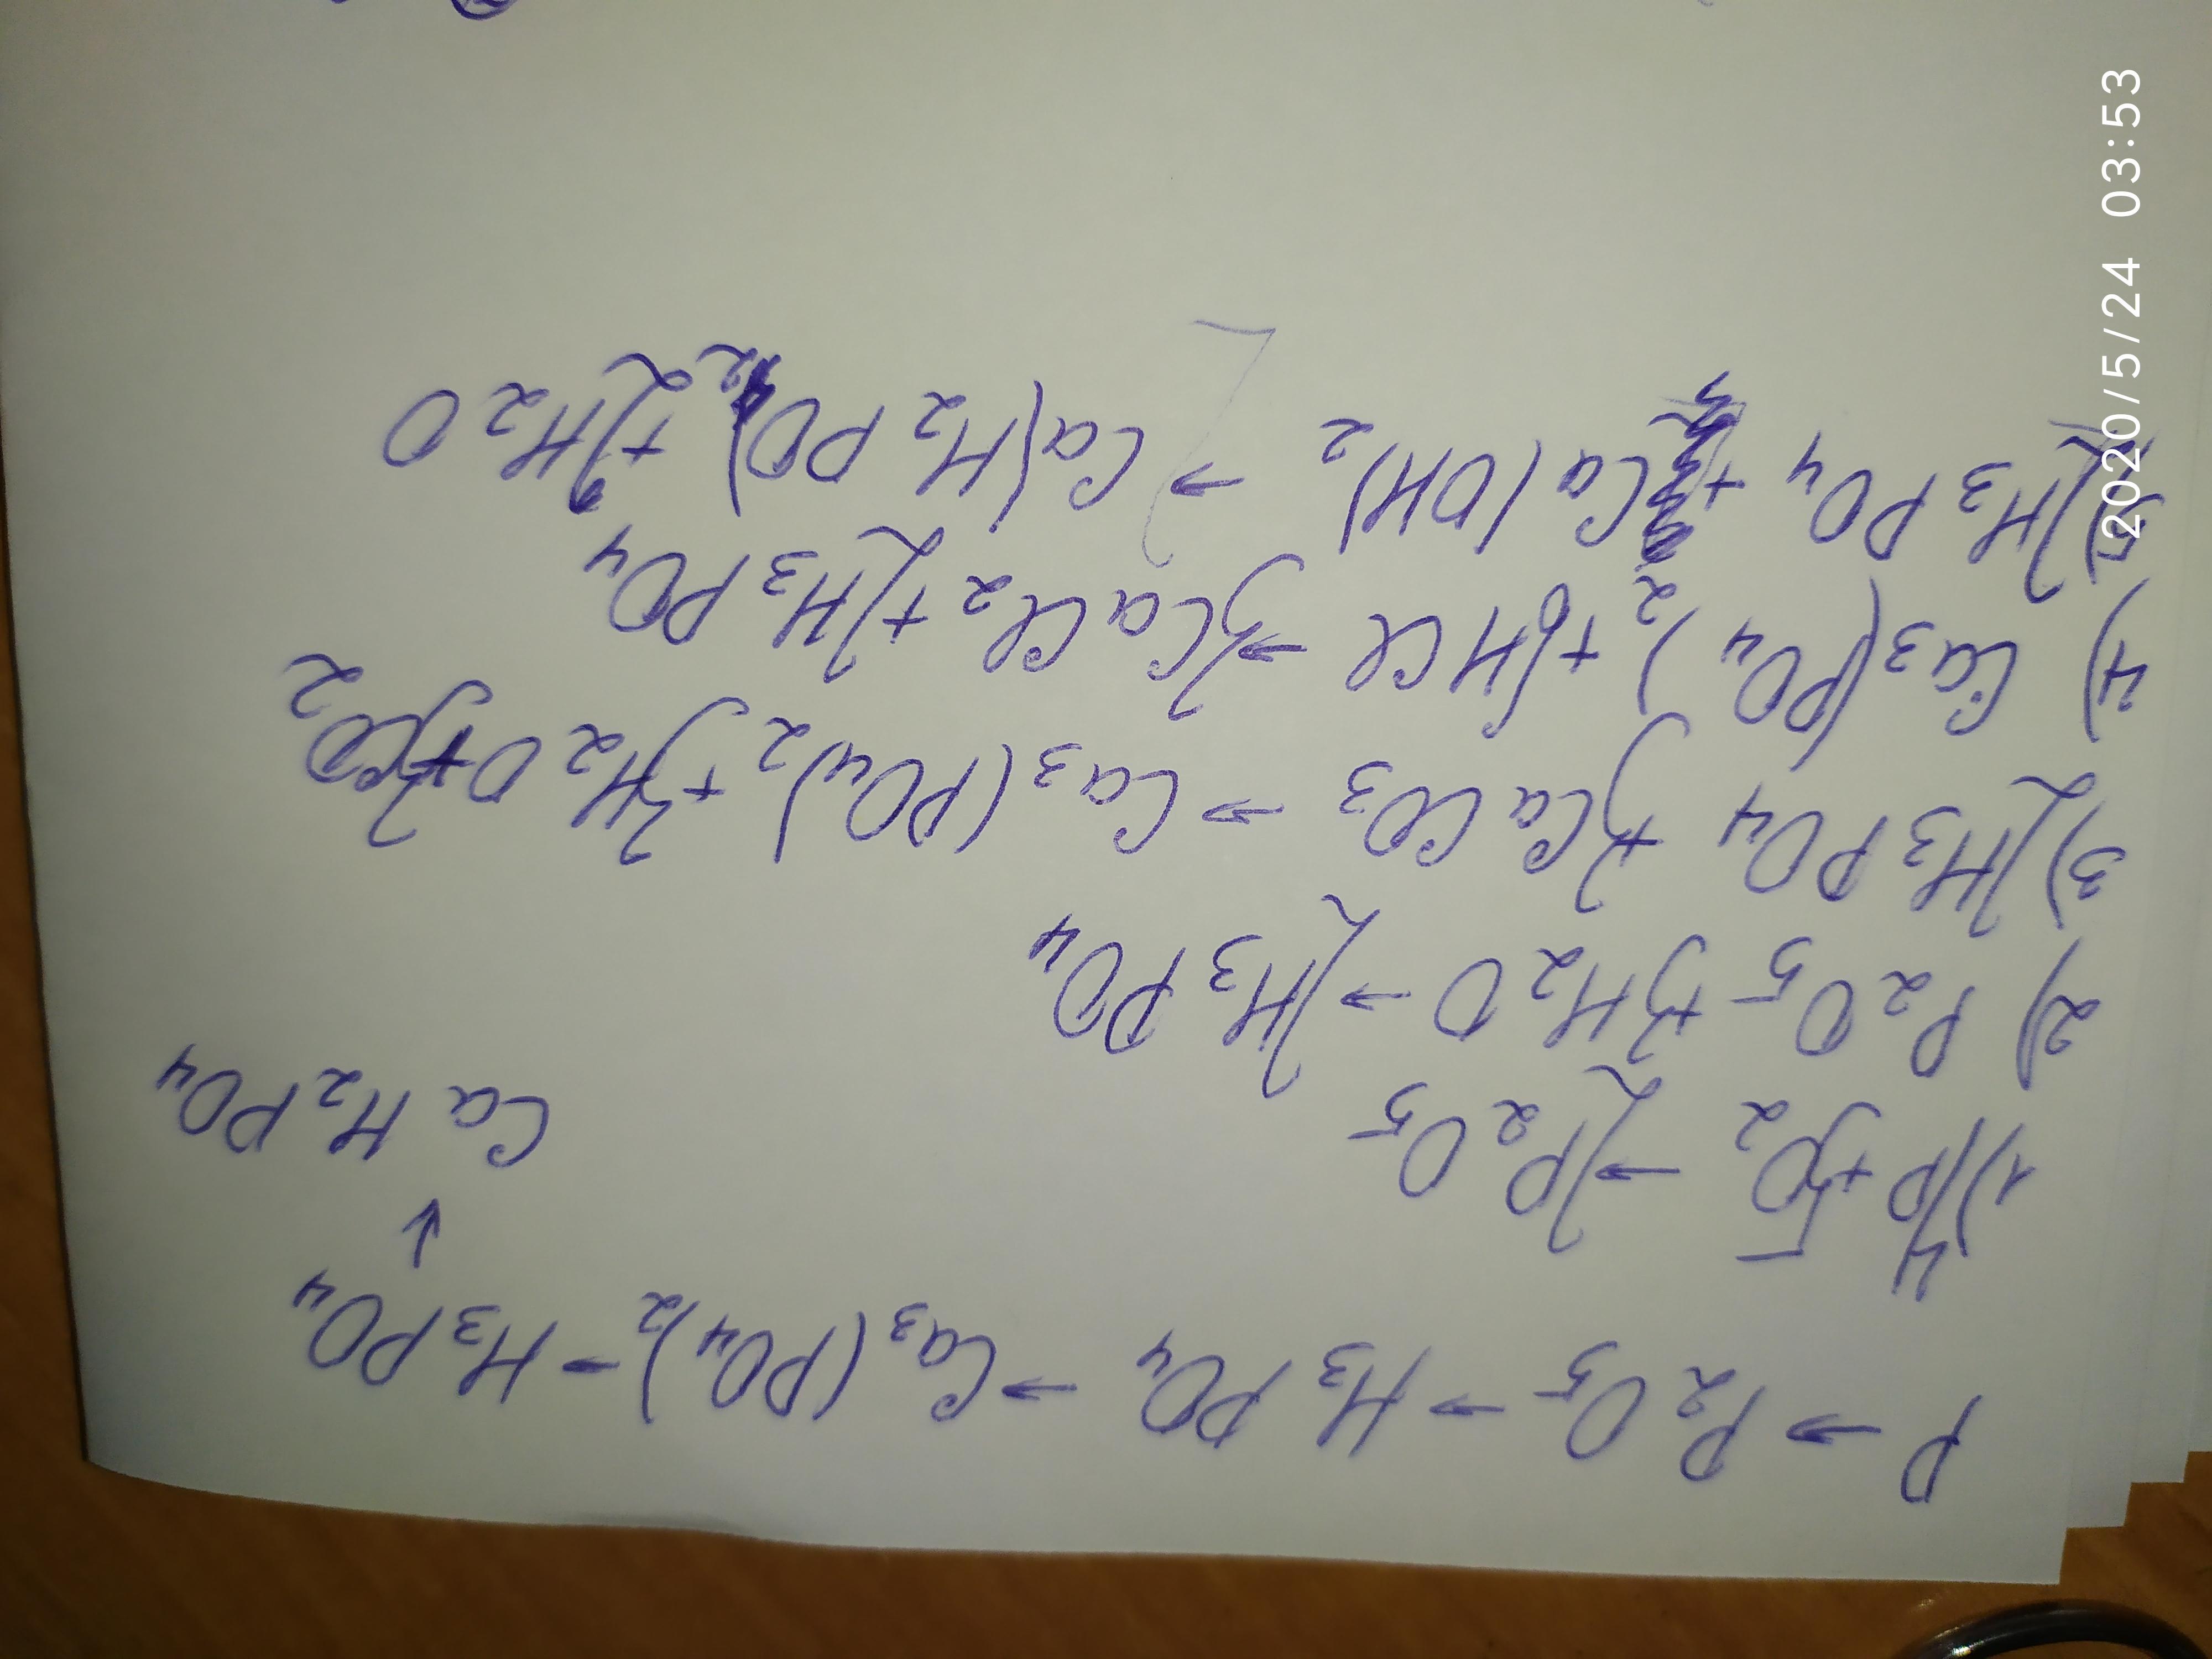 P → P₂O₅ → H₃PO₄ → Ca₃(PO₄)₂ → H₃PO₄
↓
CaH₂PO₄
1) 4P + 5O₂ → 2P₂O₅
2) P₂O₅ + 3H₂O → 2H₃PO₄
3) 2H₃PO₄ + 3CaCO₃ → Ca₃(PO₄)₂ + 3H₂O + 3CO₂
4) Ca₃(PO₄)₂ + 6HCl → 3CaCl₂ + 2H₃PO₄
5) 2H₃PO₄ + Ca(OH)₂ → Ca(H₂PO₄)₂ + 2H₂O
2020/5/24 03:53